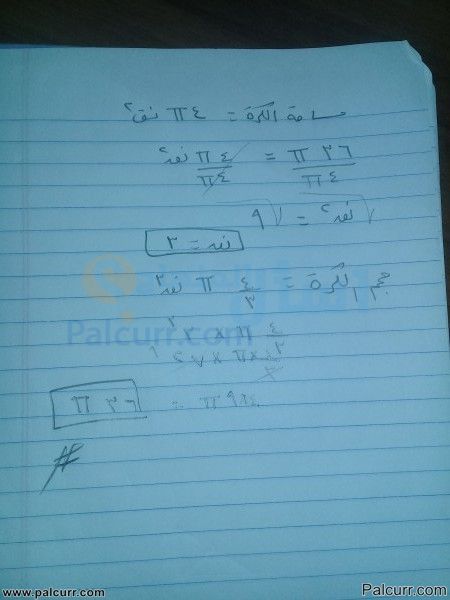 مساحة الكرة = ٤ π نق٢
٣٦ π / ٤ π = ٤ π نق٢ / ٤ π
√نق٢ = √٩
نق = ٣
حجم الكرة = ٤/٣ π نق٣
٤/٣ × π × ٣٣
٤/٣ × π × ٢٧ ٩
٤×٩ π = ٣٦ π
#
Palcurr.com
www.palcurr.com
Palcurr.com